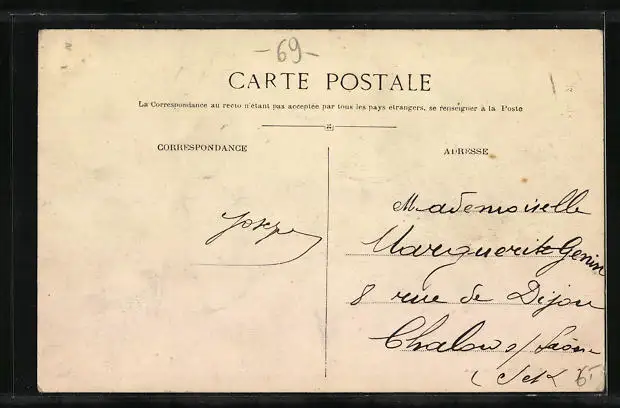 -69-
CARTE POSTALE
La Correspondance au recto n'étant pas acceptée par tous les pays étrangers, se renseigner à la Poste
CORRESPONDANCE
ADRESSE
Joseph
Mademoiselle
Marguerite Genin
8 rue de Dijon
Chalon s/ Saône
(S et L
6